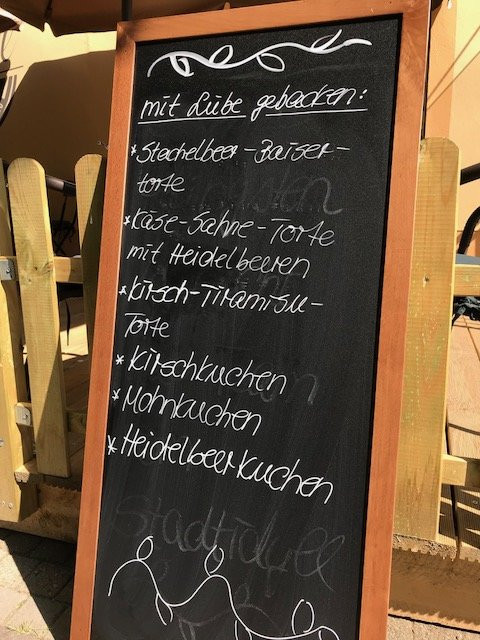 mit Liebe gebacken:
*Stachelbeer-Baiser-
torte
*Käse-Sahne-Torte
mit Heidelbeeren
*Kirsch-Tiramisu-
Torte
*Kirschkuchen
*Mohnkuchen
*Heidelbeerkuchen